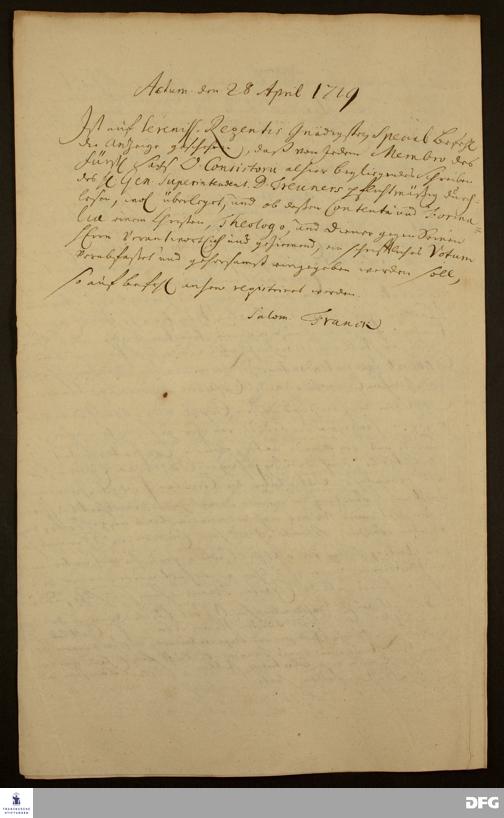 Actum den 28 April 1719
Ist auf Sereniss. Regentis Gnädigsten Special Befehl
die Anzeige geschehen, daß von Jedem Membro des
Fürstl. Sächs. O Consistorii alhier beyliegendes Schreiben
des H Gen. Superintendent. D. Treuners pflichtmäßig durch-
lesen, wol überleget, und ob dessen Contenta und Forma-
lia einem Christen, Theologo, und Diener gegen Seinen
Herrn Verantwortlich und geziemend, ein schriftliches Votum
verabfaßet und gehorsamst eingegeben werden soll,
so auf befehl anhero registriret worden.
Salom. Franck
FRANCKESCHE
STIFTUNGEN
DFG